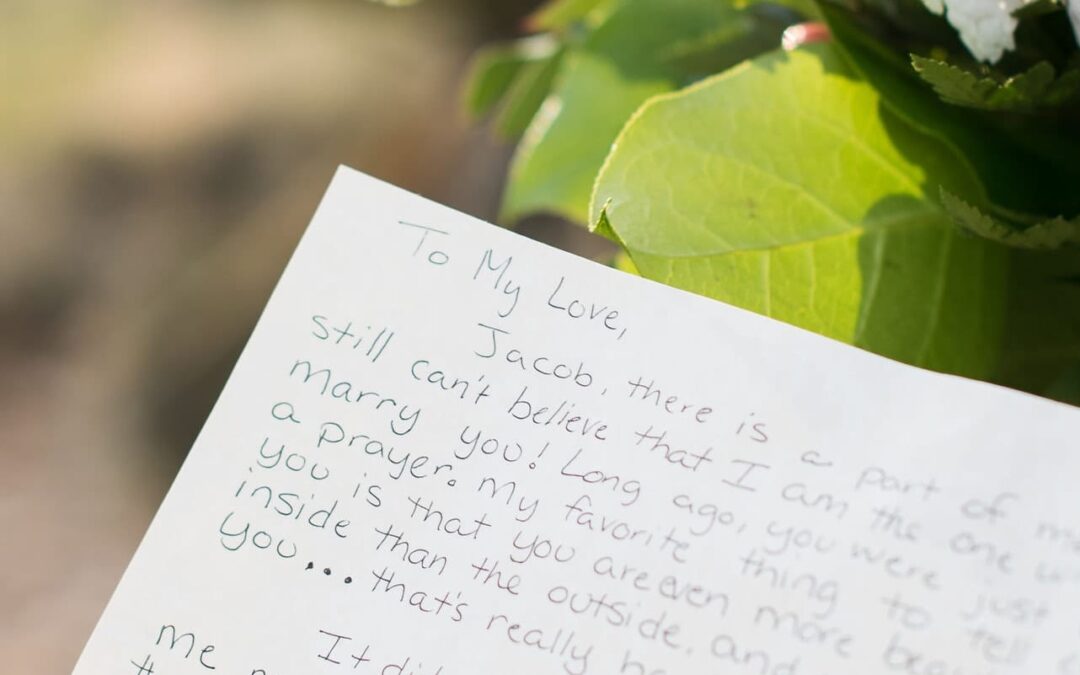 To My Love,
Jacob, there is a part of me
still can't believe that I am the one
marry you! Long ago, you were just
a prayer. My favorite thing to tell
you is that you are even more
inside than the outside, and
you... that's really
It
me